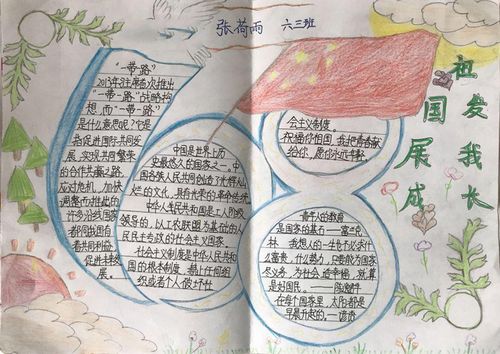 张荷雨 六三班
祖国发展我成长
"一带一路"
2013年主席首次推出
"一带一路"战略构
想,而"一带一路"
是什么意思呢?它是
指促进国际共同发
展、实现共同繁荣
的合作共赢之路。
应对危机,加快
调整而推出的。
许多沿线国家
都同由拥有
着共同利益
促进上丝发
展。
中国是世界上历
史最悠久的国家之一。中国
各族人民共同创造了光辉灿
烂的文化,具有光荣的革命传统
中华人民共和国是工人阶级
领导的,以工农联盟为基础的人
民民主专政的社会主义国家。
社会主义制度是中华人民共和
国的根本制度,禁止任何组
织或者个人破坏社
会主义制度。
祝福你祖国,我把青春献
给你,愿你永远年轻
青年人的教育
是国家的基石——富兰克
林
我想人的一生也不必求什
么富贵,什么势力,只要能为国家
尽义务,为社会 幸福,就算
是好国民。
在每个国家里,太阳都是
早晨升起的。——谚语